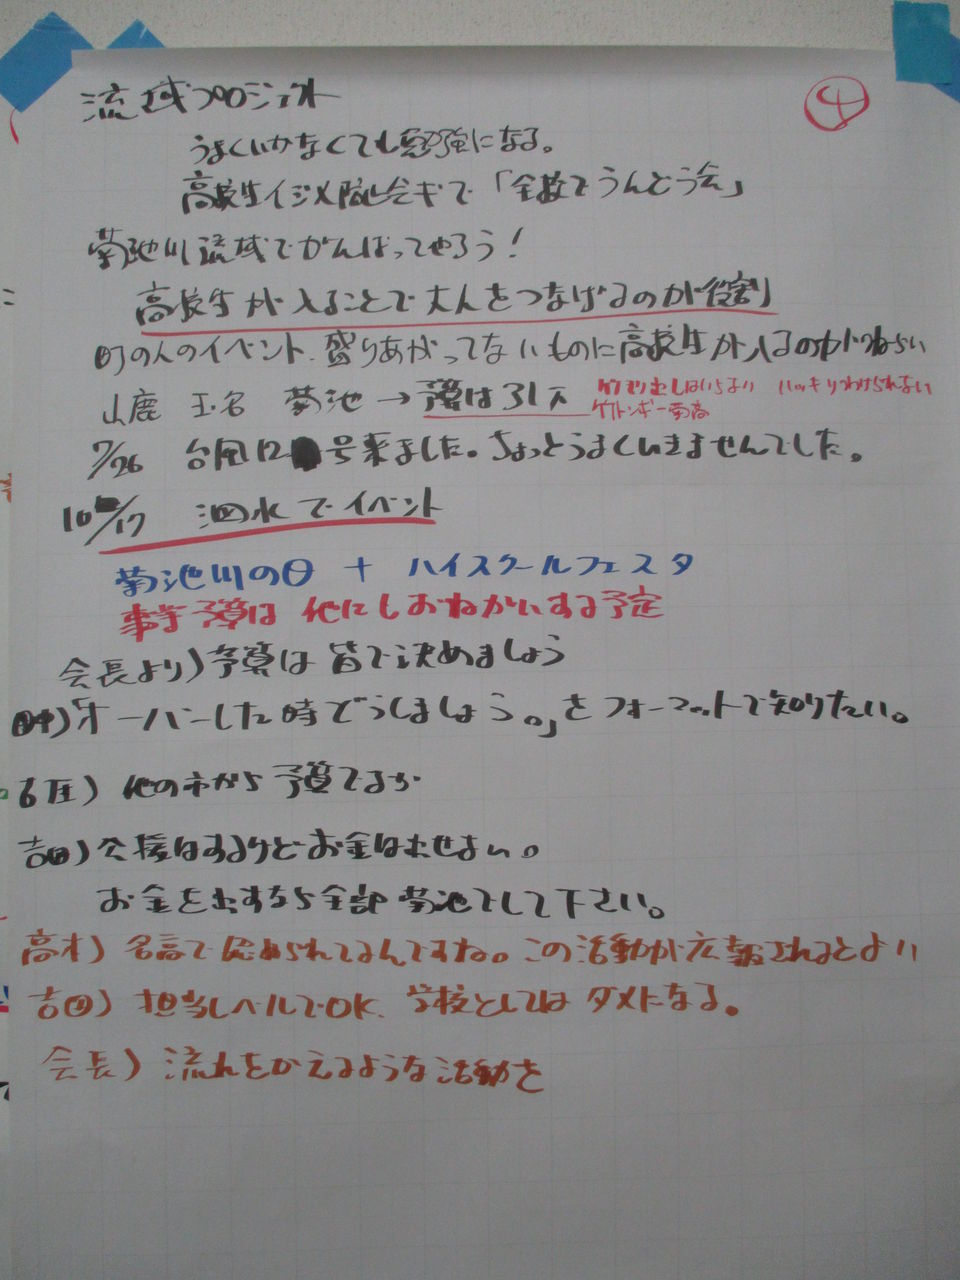 流域プロジェクト
④
うまくいかなくても勉強になる。
高校生イジメ防止会ギで「全校でうんどう会」
菊池川流域でがんばってやろう!
高校生が入ることで大人をつなげるのが役割
町の人のイベント、盛りあがってないものに高校生が入るのがねらい
山鹿 玉名 菊池→予算は31万
ハッキリつけられない
7/26 台風12号来ました。ちょっとうまくいきませんでした。
10/17 泗水でイベント
菊池川の日 + ハイスクールフェスタ
事業予算は他にもおねがいする予定
会長より)予算は皆で決めましょう
田中)オーバーした時どうしましょう。」をフォーマットで知りたい。
他の市から予算でるか
吉田)公援はするけどお金は出せない。
お金を出すなら全部菊池でして下さい。
高オ)各高で認められてるんですね。この活動が広報されるとよい
吉田)担当レベルでOK、学校としてはダメになる。
会長)流れをかえるような活動を